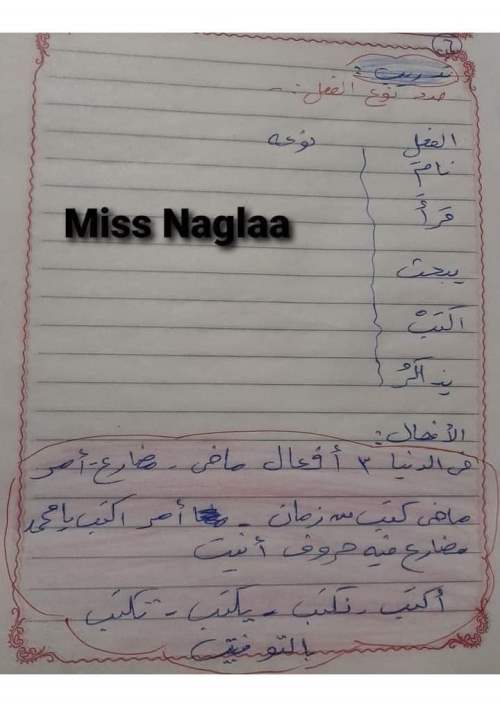 ٦
تدريب:
حدد نوع الفعل:-
الفعل نوعه
نامَ
Miss Naglaa
قرأَ
يبحث
اكتبْ
يذاكرُ
الأفعال:
في الدنيا ٣ أفعال ماضى - مضارع - أمر
ماضى كتب من زمان - أمر اكتب يا محمد
مضارع فيه حروف أنيت
أكتب - نكتب - يكتب - تكتب
بالتوفيق